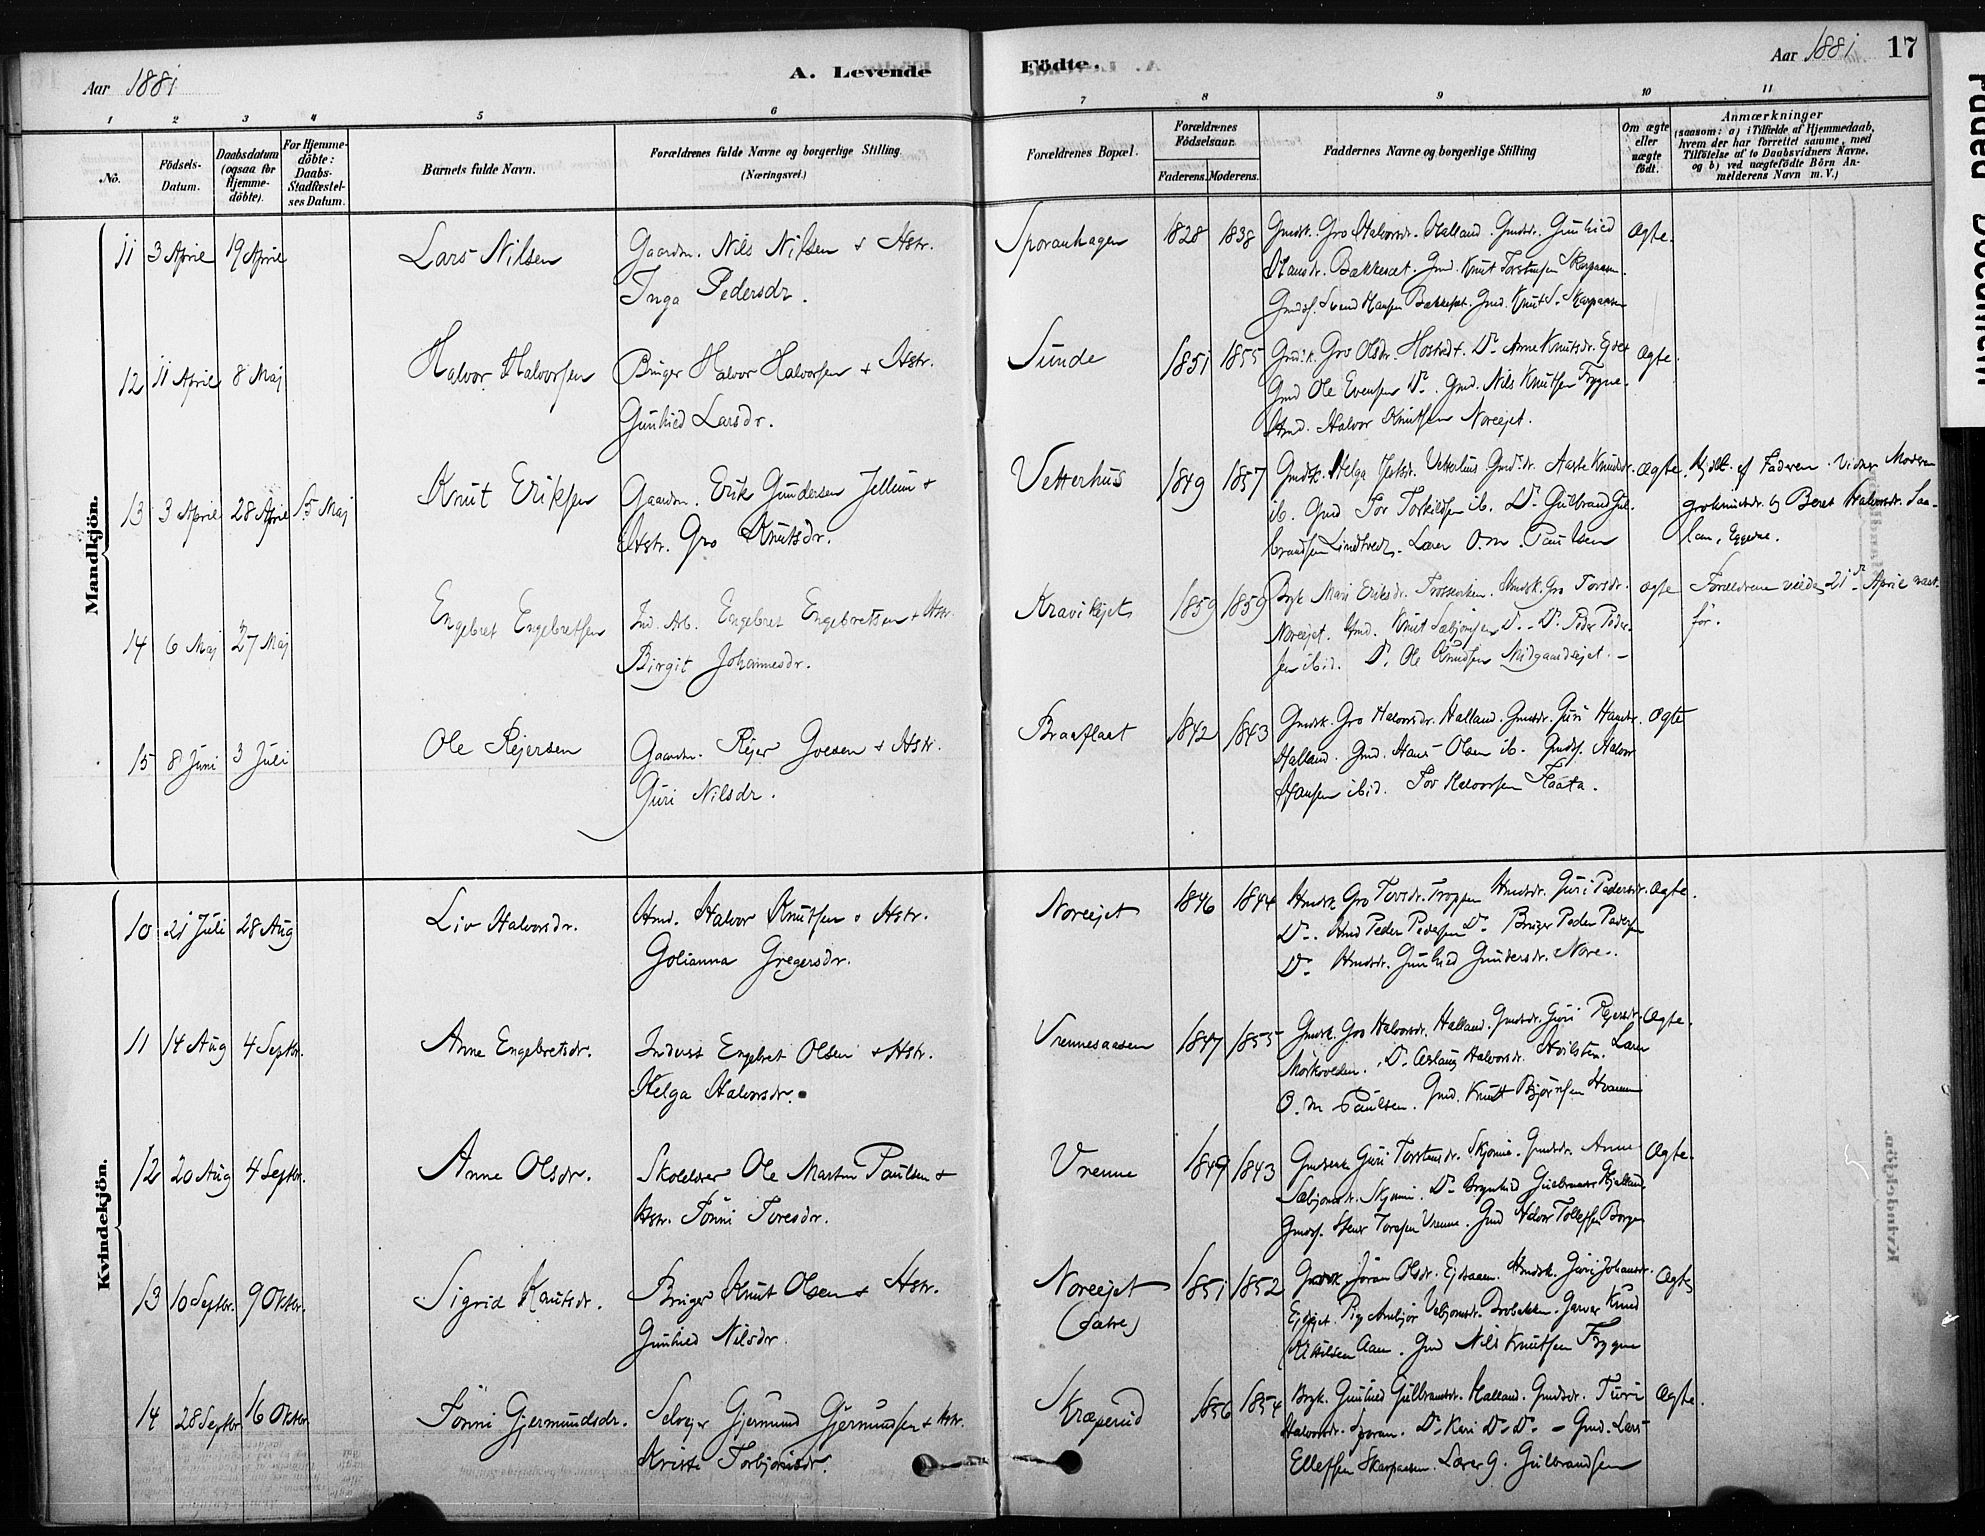 Aar 1881
A. Levende
Födte.
Aar 1881
17
1 2 3 4 5 6 7 8 9 10 11
No.
Födsels-Datum.
Daabsdatum (ogsaa for Hjemme-döbte).
For Hjemme-döbte: Daabs-Stadfæstel-ses Datum.
Barnets fulde Navn.
Forældrenes fulde Navne og borgerlige Stilling (Næringsvei.)
Forældrenes Bopæl.
Forældrenes Födselsaar.
Faderens. Moderens.
Faddernes Navne og borgerlige Stilling
Om ægte eller uægte födt.
Anmærkninger
(saasom: a) i Tilfælde af Hjemmedaab, hvem der har forrettet samme, med Tilföielse af to Daabsvidners Navne, og b) ved uægtefödte Börn An-melderens Navn m. V.)
Mandkjön.
11 3 April 19 April Lars Nilsen
Gaardm. Nils Nilsen + Hstr.
Inga Pedersdr.
Sporanhagen 1828 1838
Gmdsk. Gro Halvorsdr. Halland. Gmdsdr. Gunhild
Hansdr. Bakkesæt. Gmd. Knut Torstensen Skarpaasen.
Gmdss. Svend Hansen Bakkesæt. Gmd. Knut S. Skarpaasen
Ægte.
12 11 April 8 Maj Halvor Halvorsen
Bruger Halvor Halvorsen + Hstr.
Gunhild Larsdr.
Sunde 1851 1855
Gro Olsdr. Hostvedt. Do Anne Knutsdr.
Gmd Ole Evensen Do. Gmd. Nils Knutsen Frygne.
Hmd. Halvor Knutsen Noreejet.
Ægte.
13 3 April 28 April 15 Maj Knut Eriksen
Gaardm. Erik Gundersen Jellum +
Hstr. Gro Knutsdr.
Vetterhus 1849 1857
Gmdsk. Helga Vetterhus Gmdsdr. Aaste Knutsdr.
ib. Gmd Tor Torkildsen ib. Do Gulbrand Gul-
brandsen Lindtvedt. Lærer O. M. Paulsen
Ægte.
Hjdbt. af Faderen. Vidner Moderen
Gro Knutsdr. og Beret Halvorsdr. Laa-
lan, Eggedal.
14 6 Maj 27 Maj Engebret Engebretsen
Ind. Arb. Engebret Engebretsen + Hstr
Birgit Johannesdr.
Kravikejet 1859 1859
Mari Eriksdr. Hmdsk. Gro Torsdr.
Noreejet. Hmd. Knut Sæbjørnsen Do. Do. Peder Peder-
sen ibid. Do. Ole Knudsen Midgaardsejet.
Ægte
Forældrene viede 21de April næst-
før.
15 8 Juni 3 Juli Ole Rejersen
Gaardm. Rejer Goesen + Hstr.
Guri Nilsdr.
Braaflaat 1842 1843
Gmdsk. Gro Halvorsdr. Halland. Gmdsdr. Guri Hansdr.
Halland. Gmd. Hans Olsen ib. Gmdss. Halvor
Hansen ibid. Tov Halvorsen Flaata.
Ægte
Kvindekjön.
10 21 Juli 28 Aug Liv Halvorsdr.
Hmd. Halvor Knutsen + Hstr.
Golianna Gregersdr.
Noreejet 1846 1844
Hmdsk Gro Torsdr. Troppen Hmdsdr. Guri Pedersdr.
Do. Hmd Peder Pedersen Do Bruger Peder Pedersen
Do Hmdsdr. Gunhild Gundersdr. Nore.
Ægte.
11 14 Aug 4 Septbr. Anne Engebretsdr.
Inderst Engebret Olsen + Hstr.
Helga Halvorsdr.
Vrennesaasen 1847 1855
Gmdsk. Gro Halvorsdr. Halland. Gmdsdr. Guri Rejersdr.
Mørkvolden. Do Aslaug Halvorsdr. Hvilsten. Lærer
O. M. Paulsen. Gmd. Knut Bjørnsen
Ægte.
12 20 Aug 4 Septbr. Anne Olsdr.
Skolelærer Ole Martin Paulsen +
Hstr. Tønni Toresdr.
Vrenne 1849 1843
Gmdsk Guri Torstensdr. Skjønne. Gmdsdr. Anne
Sæbjørnsdr. Skjønne. Do Brynhild
Gmdss. Toresen Vrenne. Gmd Halvor Tollefsen Borgen
Ægte.
13 10 Septbr. 9 Oktbr. Sigrid Knutsdr.
Bruger Knut Olsen + Hstr.
Gunhild Nilsdr
Noreejet
(Sætre)
1851 1852
Jøran Olsdr. Hmdsk. Guri Johansdr.
Ejdejet. Pig. Knud
Kittilsen Aan. Gmd Nils Knutsen Frygne
Ægte
14 28 Septbr 16 Oktbr Tønni Gjermundsdr.
Selvejer Gjermund Gjermundsen + Hstr.
Kristi Torbjørnsdr.
Skræperud 1856 1854
Brgk. Gunhild Gulbrandsdr. Halland. Gmdsdr. Turi
Halvorsdr. Sporan. Do Kari Do Do. – Gmd. Lars
Ellefsen Skarpaasen. Lærer G. Gulbrandsen
Ægte.